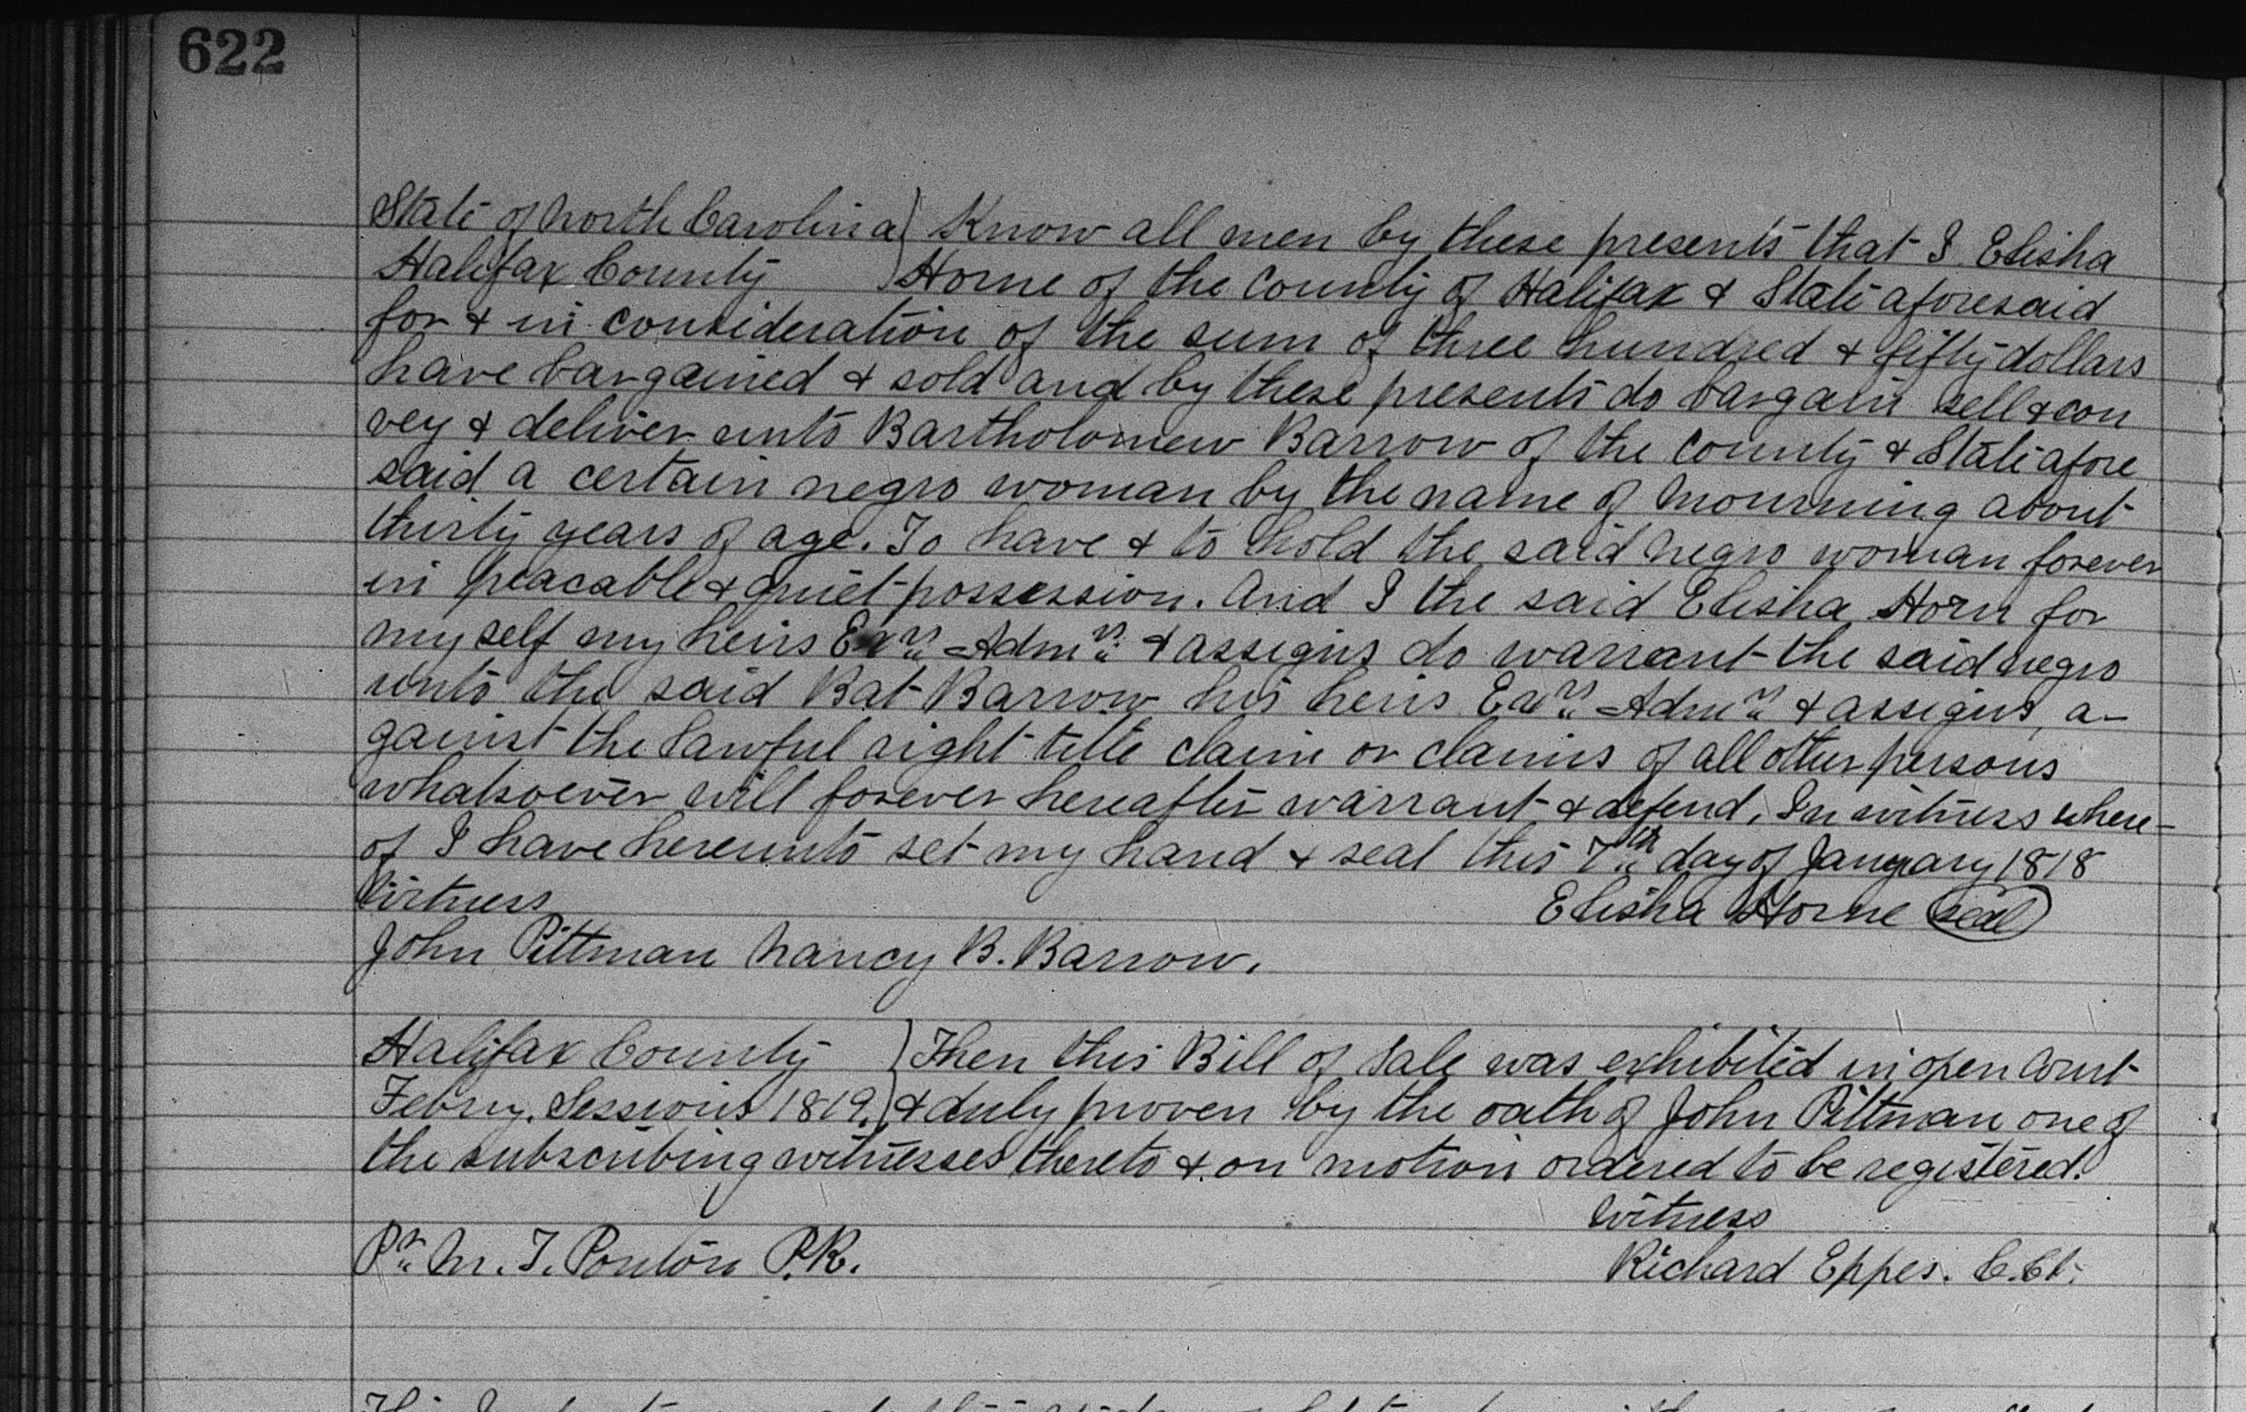 622
State of North Carolina) Know all men by these presents that I Elisha
Halifax County ) Horne of the County of Halifax & State aforesaid
for & in consideration of the sum of three hundred & fifty dollars
have bargained & sold and by these presents do bargain sell & con
vey & deliver unto Bartholomew Barrow of the County & State afore
said a certain negro woman by the name of Mourning about
thirty years of age. To have & to hold the said negro woman forever
in peacable & quiet possession. And I the said Elisha Horn for
my self my heirs Exrs Admrs & assigns do warrant the said negro
unto the said Bat Barrow his heirs Exrs Admrs & assigns, a-
gainst the lawful right title claim or claims of all other persons
whatsoever will forever hereafter warrant & defend, In witness where-
of I have hereunto set my hand & seal this 7th day of January 1818
Witness Elisha Horne (seal)
John Pittman Nancy B. Barrow.
Halifax County ) Then this Bill of Sale was exhibited in open Court
Febry. Sessions 1819.) & duly proven by the oath of John Pittman one of
the subscribing witnesses thereto & on motion ordered to be registered.
Witness
Pr. M. T. Ponton P.R. Richard Eppes. C. Ct.